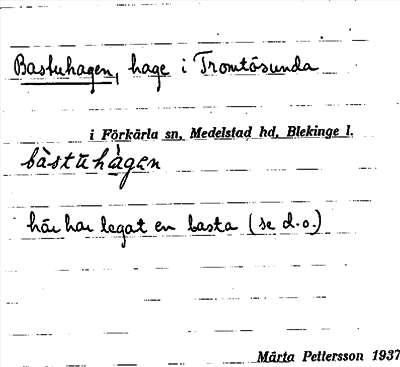 Bastuhagen, hage i Tromtösunda
i Förkärla sn, Medelstad hd, Blekinge l.
bàstuhàgen
här har legat en basta (se d.o.)
Märta Pettersson 1937